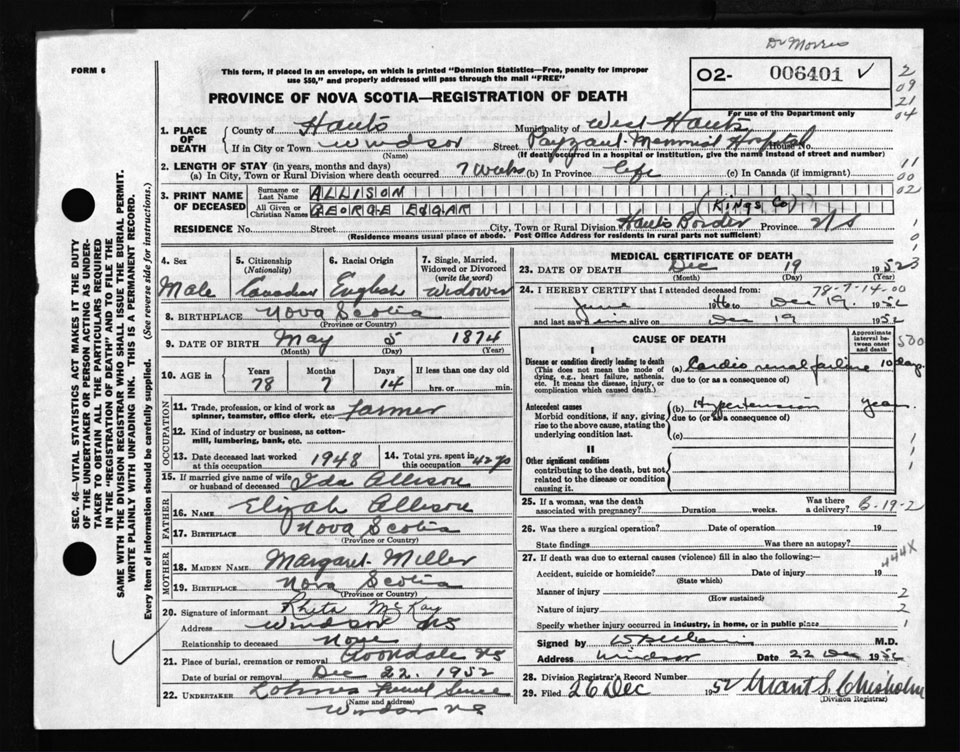 Dr Morris
FORM 6
This form, if placed in an envelope, on which is printed "Dominion Statistics—Free, penalty for improper
use $50," and properly addressed will pass through the mail "FREE"
02- 006401 ✓
2
09
21
04
PROVINCE OF NOVA SCOTIA—REGISTRATION OF DEATH
For use of the Department only
1. PLACE OF DEATH
County of Hants Municipality of West Hants
If in City or Town Windsor Street Payzant Memorial Hospital House No.
(Name) (If death occurred in a hospital or institution, give the name instead of street and number)
2. LENGTH OF STAY (in years, months and days)
(a) In City, Town or Rural Division where death occurred 7 weeks (b) In Province life (c) In Canada (if immigrant)
11
00
02
3. PRINT NAME OF DECEASED
Surname or Last Name ALLISON
All Given or Christian Names GEORGE EDGAR
(Kings Co)
RESIDENCE No. Street City, Town or Rural Division Hants Border Province N/S
(Residence means usual place of abode. Post Office Address for residents in rural parts not sufficient)
1
0
1
4. Sex Male
5. Citizenship (Nationality) Canadian
6. Racial Origin English
7. Single, Married, Widowed or Divorced (write the word) Widower
8. BIRTHPLACE Nova Scotia
(Province or Country)
9. DATE OF BIRTH May 5 1874
(Month) (Day) (Year)
10. AGE in Years Months Days If less than one day old
78 7 14 hrs. or min.
OCCUPATION
11. Trade, profession, or kind of work as spinner, teamster, office clerk, etc. Farmer
12. Kind of industry or business, as cotton-mill, lumbering, bank, etc.
13. Date deceased last worked at this occupation 1948
14. Total yrs. spent in this occupation 42 yo
15. If married give name of wife or husband of deceased Ida Allison
FATHER
16. NAME Elizah Allison
17. BIRTHPLACE Nova Scotia
(Province or Country)
MOTHER
18. MAIDEN NAME Margaret Miller
19. BIRTHPLACE Nova Scotia
(Province or Country)
20. Signature of informant Rheta McKay
Address Windsor NS
Relationship to deceased None
21. Place of burial, cremation or removal Avondale NS
Date of burial or removal Dec 22, 1952
22. UNDERTAKER Lohnes Funeral Service
(Name and address)
Windsor NS
MEDICAL CERTIFICATE OF DEATH
23. DATE OF DEATH Dec 19 1952
(Month) (Day) (Year)
78-7-14-00
24. I HEREBY CERTIFY that I attended deceased from:
June to Dec 19. 1952
and last saw him alive on Dec 19 1952
CAUSE OF DEATH
Approximate interval between onset and death
500
I
Disease or condition directly leading to death
(This does not mean the mode of dying, e.g., heart failure, asthenia, etc. It means the disease, injury, or complication which caused death.)
(a) Cardio renal failure 10 days
due to (or as a consequence of)
Antecedent causes
Morbid conditions, if any, giving rise to the above cause, stating the underlying condition last.
(b) Hypertension year
due to (or as a consequence of)
(c)
II
Other significant conditions
contributing to the death, but not related to the disease or condition causing it.
1
1
1
25. If a woman, was the death associated with pregnancy? Duration weeks. Was there a delivery?
B-19-2
26. Was there a surgical operation? Date of operation 19
State findings Was there an autopsy?
444X
27. If death was due to external causes (violence) fill in also the following:—
Accident, suicide or homicide? Date of injury 19
(State which)
Manner of injury 2
(How sustained)
Nature of injury 2
Specify whether injury occurred in industry, in home, or in public place 1
Signed by M.D.
Address Windsor Date 22 Dec 1952
28. Division Registrar's Record Number
29. Filed 26 Dec 1952 Grant S. Chisholm
(Division Registrar)
SEC. 46—VITAL STATISTICS ACT MAKES IT THE DUTY
OF THE UNDERTAKER OR PERSON ACTING AS UNDER-
TAKER TO OBTAIN ALL THE PARTICULARS REQUIRED
IN THE "REGISTRATION OF DEATH" AND TO FILE THE
SAME WITH THE DIVISION REGISTRAR WHO SHALL ISSUE THE BURIAL PERMIT.
WRITE PLAINLY WITH UNFADING INK. THIS IS A PERMANENT RECORD.
Every item of information should be carefully supplied. (See reverse side for instructions.)